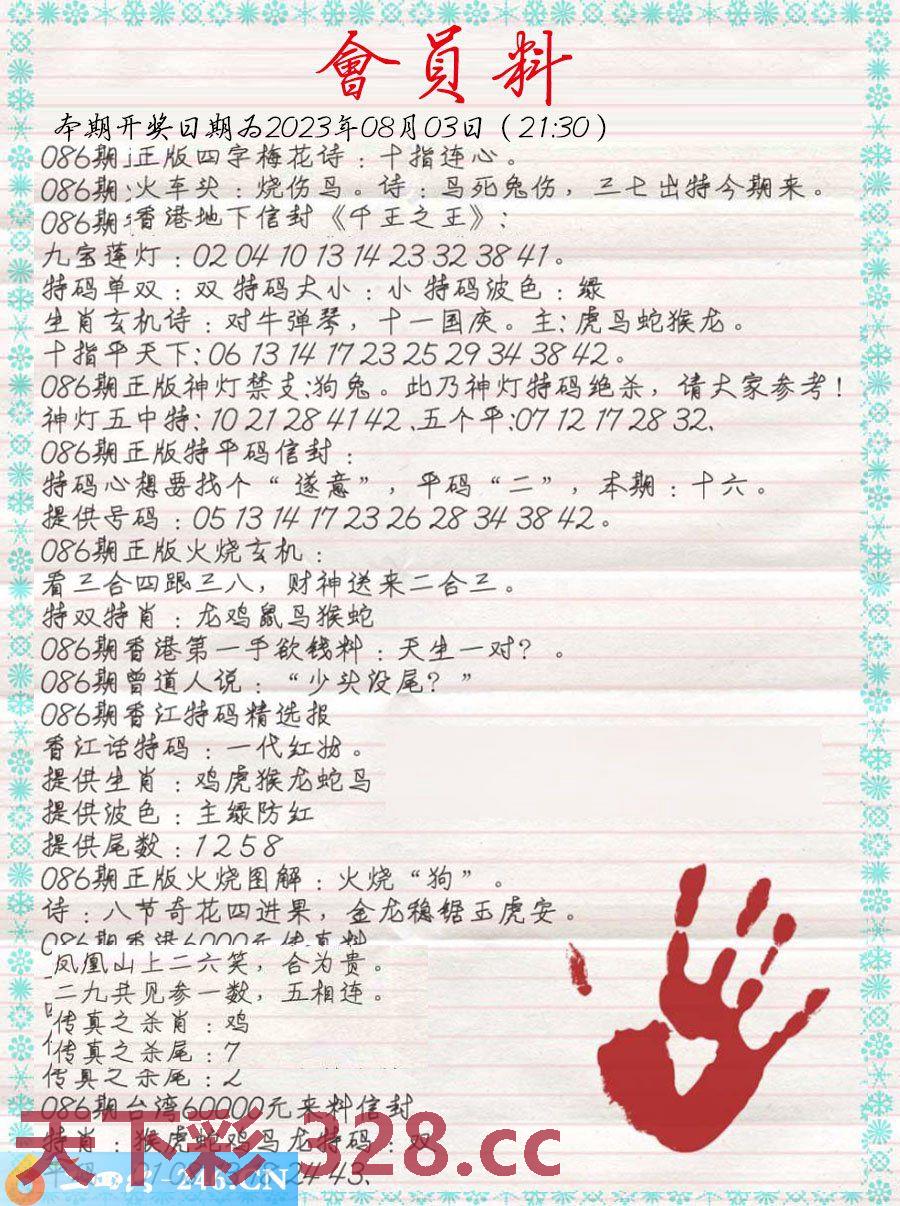 會員料
本期开奖日期为2023年08月03日（21:30）
086期正版四字梅花诗：十指连心。
086期:火车头：烧伤鸟。诗：鸟死兔伤，三七出特今期来。
086期 香港地下信封《千王之王》：
九宝莲灯：02 04 10 13 14 23 32 38 41。
特码单双：双 特码大小：小 特码波色：绿
生肖玄机诗：对牛弹琴，十一国庆。主：虎马蛇猴龙。
十指平天下：06 13 14 17 23 25 29 34 38 42。
086期正版神灯禁支:狗兔。此乃神灯特码绝杀，请大家参考！
神灯五中特：10 21 28 41 42 、五个平:07 12 17 28 32、
086期正版特平码信封：
特码心想要找个“遂意”，平码“二”，本期：十六。
提供号码：05 13 14 17 23 26 28 34 38 42。
086期正版火烧玄机：
看三合四跟三八，财神送来二合三。
特双特肖：龙鸡鼠马猴蛇
086期香港第一手欲钱料：天生一对？。
086期曾道人说：“少头没尾？”
086期香江特码精选报
香江话特码：一代红妆。
提供生肖：鸡虎猴龙蛇马
提供波色：主绿防红
提供尾数：1 2 5 8
086期正版火烧图解：火烧“狗”。
诗：八节奇花四进果，金龙稳锯玉虎安。
086期香港6000元传真料
凤凰山上二六笑，合为贵。
二九共见参一数，五相连。
传真之杀肖：鸡
传真之杀尾：7
传真之杀尾：2
086期台湾60000元来料信封
特肖：猴虎蛇鸡马龙特码：双
天下彩 328.cc
24 43、
246.CN